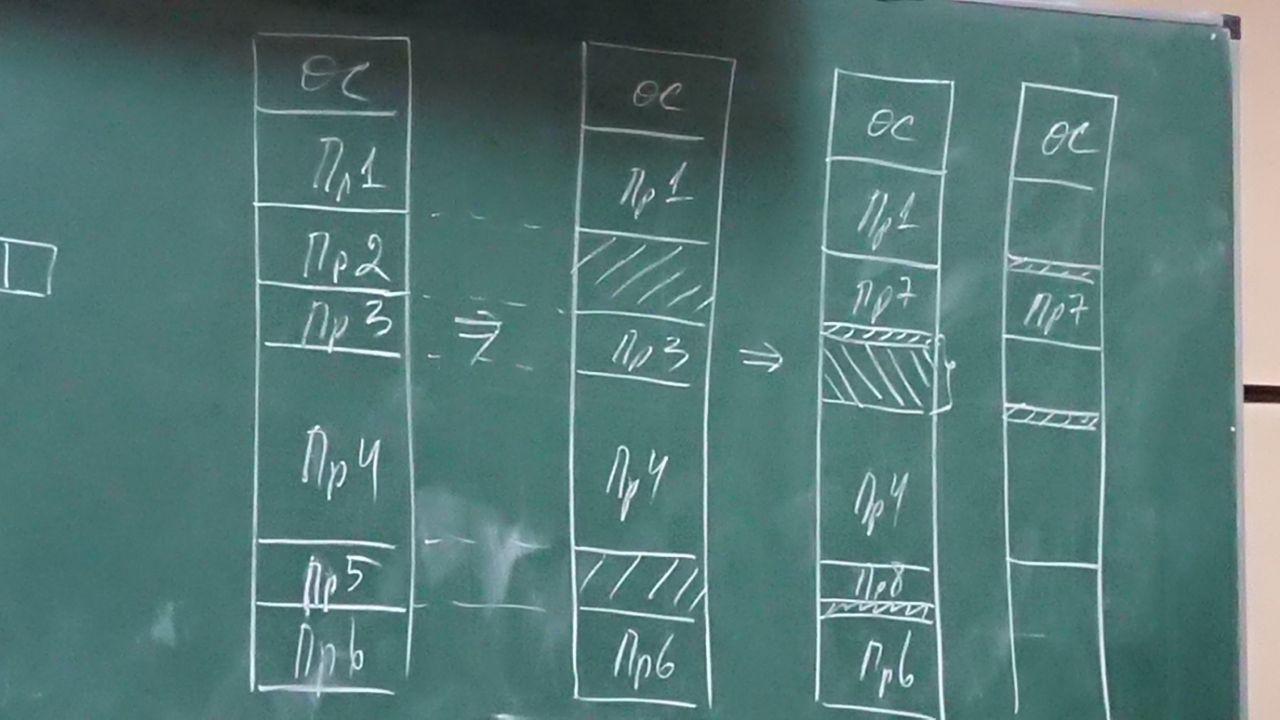 ОС
Пр1
Пр2
Пр3
Пр4
Пр5
Пр6
ОС
Пр1
Пр3
Пр4
Пр6
ОС
Пр1
Пр7
Пр4
Пр8
Пр6
ОС
Пр7